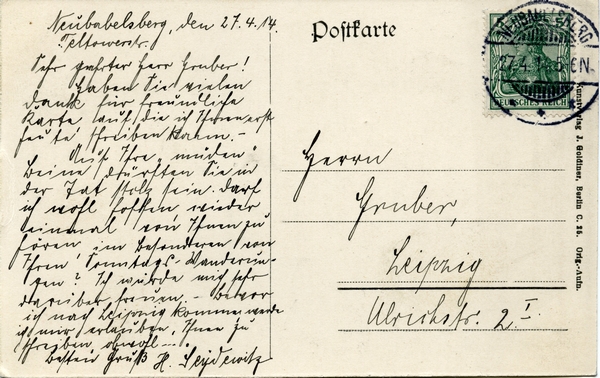 Neubabelsberg, den 27.4.14.
Teltowerstr.
Sehr geehrter Herr Gruber!
Haben Sie vielen
Dank für freundliche
Karte auf die ich Ihnen erst
heute schreiben kann. –
Auf Ihre „müden"
Beine dürften Sie in
der Tat stolz sein. Darf
ich wohl hoffen wieder
einmal von Ihnen zu
hören, im Besonderen von
Ihren Sonntags-Wanderun-
gen? Ich würde mich sehr
darüber freuen. – Bevor
ich nach Leipzig komme werde
ich mir erlauben, Ihnen zu
schreiben, obwohl – .
Besten Gruß H. Seydewitz
Postkarte
NEUBABELSBERG
27.4.14 5-6N.
DEUTSCHES REICH
Herrn
Gruber,
Leipzig
Ulrichstr. 2 I.
Kunstverlag J. Goldiner, Berlin C. 25. Orig.-Aufn.